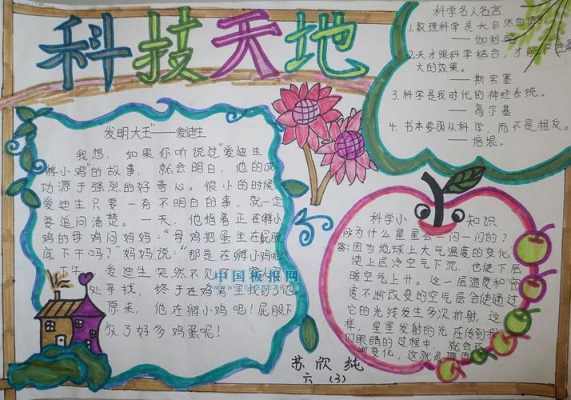 科技天地
发明大王"——爱迪生
我想,如果你听说过"爱迪生
孵小鸡"的故事,就会明白,他的成
功源于强烈的好奇心。很小的时候
爱迪生只要一有不明白的事,就一定
要追问清楚。一天,他指着正在孵小
鸡的母鸡问妈妈:"母鸡把蛋坐在屁股
底下干吗?"妈妈说:"那是在孵小鸡
爱迪生突然不见
处寻找,终于在鸡窝里找到了他
原来,他在孵小鸡呢!屁股下
放了好多鸡蛋呢!
中国板报网
科学名人名言
1.数理科学是大自然
——伽利略
2.天才跟科学结合,才
大的效果。
——斯宾塞
3.科学是我时代的神经系统。
——高尔基
4.书本要围从科学,而不是相反。
——培根。
科学小知识
问为什么星星会一闪一闪的?
答:因为地球上大气温度的变化,
使上层冷空气下沉,也使下层
暖空气上升。这一层温度和密
度不断改变的空气层会使通过
它的光线发生多次折射,这
样,星星发射的光在传到
们眼睛的过程中,就会
变化,这就是
苏欣纯
六(3)